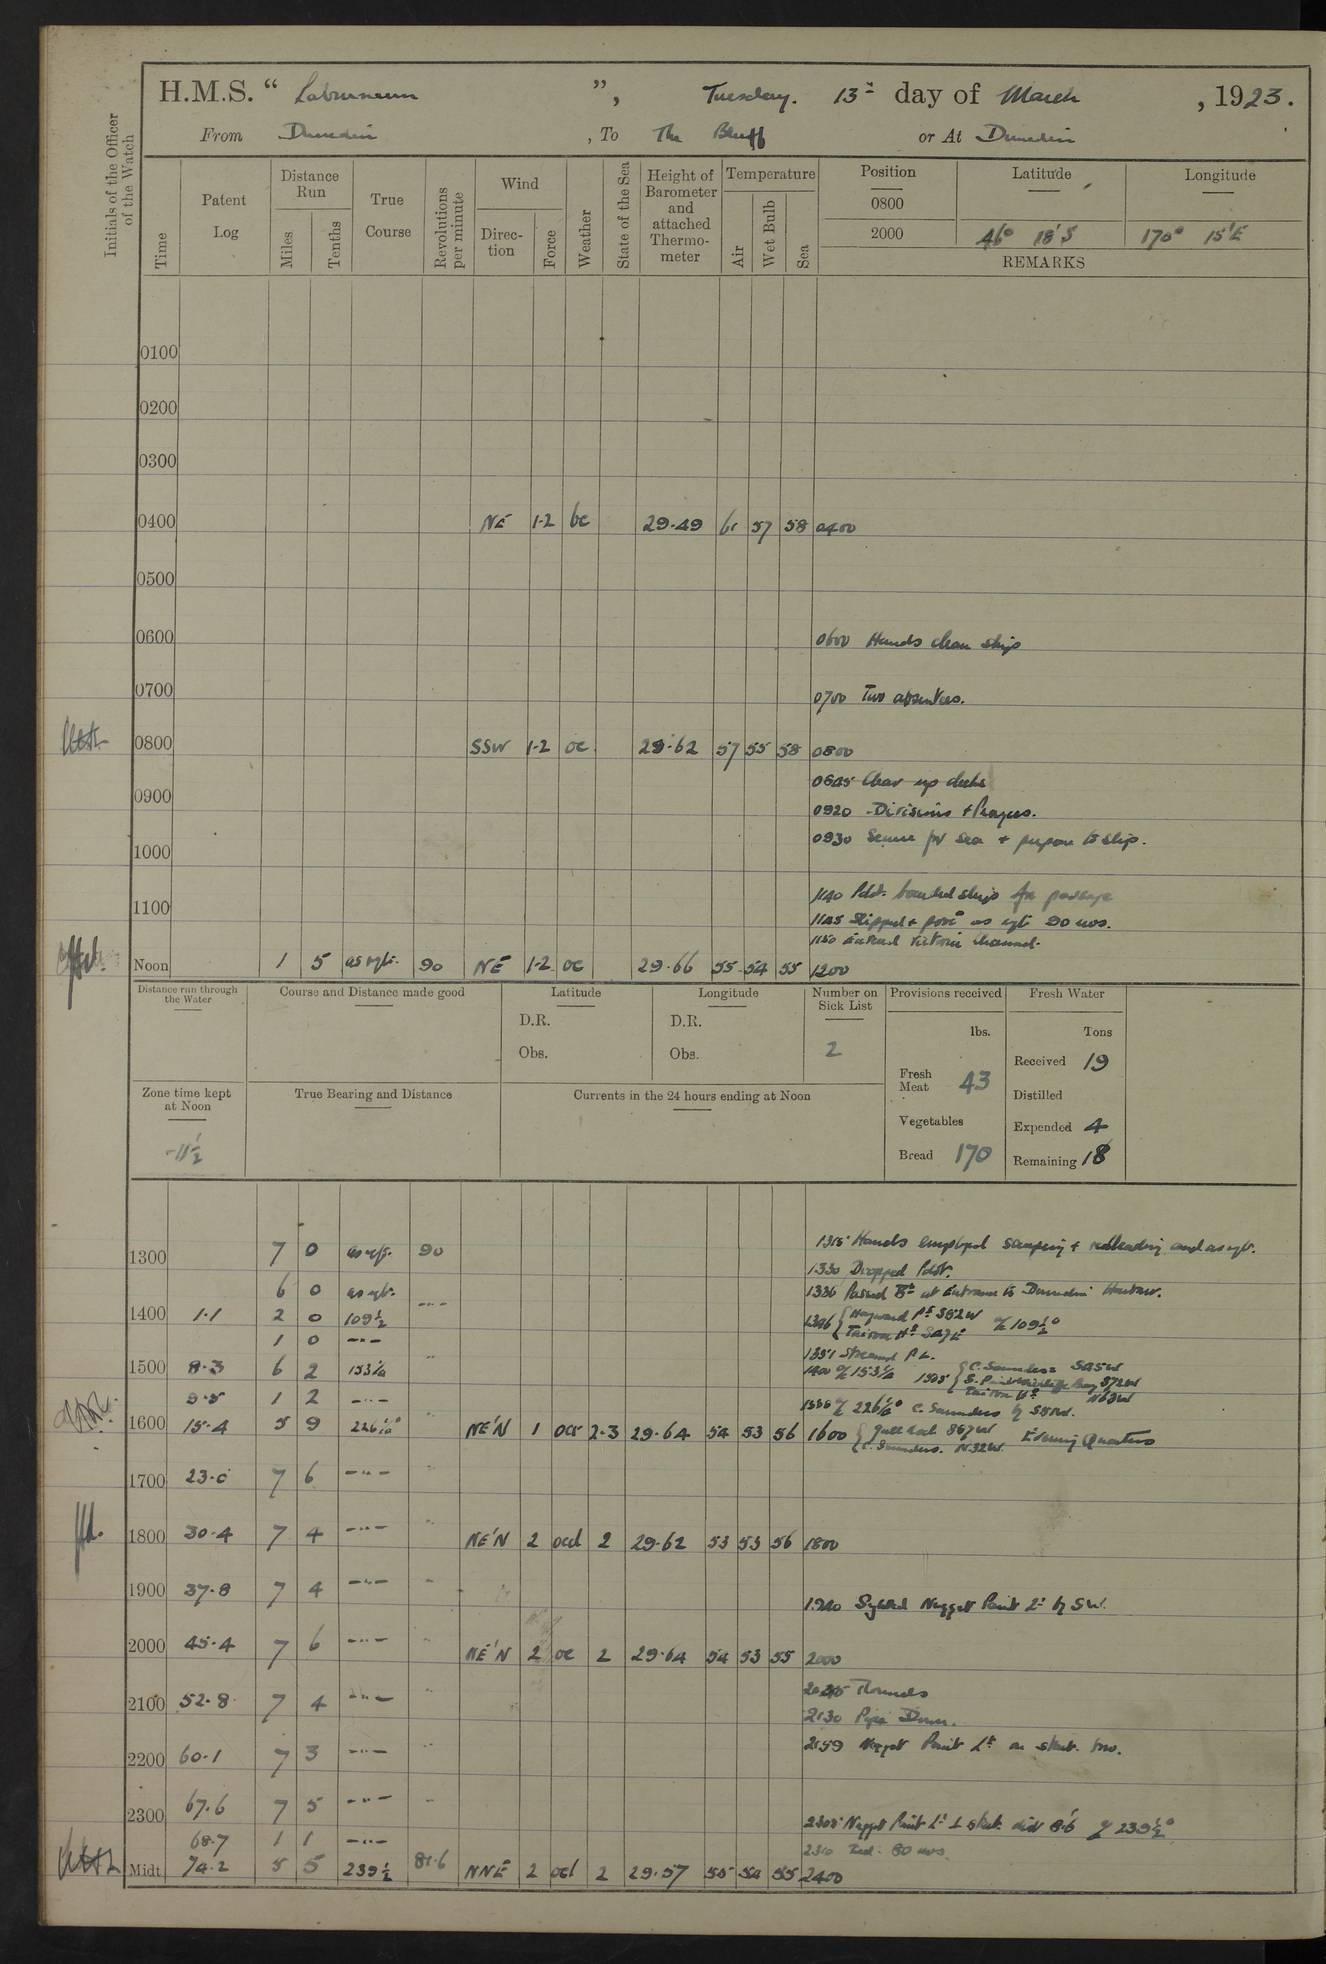 H.M.S. “ Laburnum ”, Tuesday. 13th day of March , 1923.
From Dunedin , To The Bluff or At Dunedin
Initials of the Officer of the Watch
Time Patent Log Distance Run Miles Tenths True Course Revolutions per minute Wind Direc- tion Force Weather State of the Sea Height of Barometer and attached Thermo- meter Temperature Air Wet Bulb Sea
Position Latitude Longitude
0800
2000 46° 18'S 170° 15'E
REMARKS
0100
0200
0300
0400 NE 1-2 bc 29.49 61 57 58 0400
0500
0600 0600 Hands clean ship
0700 0700 Two absentees.
0800 SSW 1-2 oc 29.62 57 55 58 0800
0845 Clear up decks
0900
0920 Divisions + Prayers.
0930 Secure for sea + prepare to slip.
1000
1140 Pilot boarded ship for passage
1100
1145 Slipped + proc'd as reqte 90 revs.
1150 Entered Victoria Channel.
Noon 1 5 as reqte. 90 NE 1-2 oc 29.66 55 54 55 1200
Distance run through the Water
Course and Distance made good
Latitude
Longitude
Number on Sick List
Provisions received
Fresh Water
D.R. D.R.
lbs. Tons
Obs. Obs. 2
Received 19
Fresh Meat 43
Distilled
Zone time kept at Noon
True Bearing and Distance
Currents in the 24 hours ending at Noon
Vegetables
Expended 4
-11½
Bread 170
Remaining 18
1300 7 0 as reqte. 90 1315 Hands employed scraping + redleading and as reqte.
1330 Dropped Pilot.
6 0 as reqte. 1336 Passed at entrance to Dunedin Harbour.
1400 1.1 2 0 109½ 1346 { Hayward Pt S82W
Taiaroa Hd S47E a/c 109½°
1 0 –"–
1351 Streamed P.L.
1500 8.3 6 2 153½ " 1400 a/c 153½ 1505 { C. Saunders S45W
S72W
Taiaroa Hd N63W
9.5 1 2 –"– 1536 a/c 226½° C. Saunders by
1600 15.4 5 9 226½° NE'N 1 2-3 29.64 54 53 56 1600 { Gull Rock S67W Evening Quarters
C. Saunders. N32W.
1700 23.0 7 6 –"– "
1800 30.4 7 4 –"– " NE'N 2 ocd 2 29.62 53 53 56 1800
1900 37.8 7 4 –"– "
1920 Sighted Nugget Point Lt by SW.
2000 45.4 7 6 –"– " NE'N 2 oc 2 29.64 54 53 55 2000
Rounds
2100 52.8 7 4 –"– "
2130 Pipe Down.
2200 60.1 7 3 –"– " 2159 Nugget Point Lt on stbd. bow.
2300 67.6 7 5 –"– "
2305 Nugget Point Lt ⊥ stbd. dist 8.6 a/c 239½°
68.7 1 1 –"–
2310 Red. 80 revs.
Midt. 74.2 5 5 239½ 81.6 NNE 2 ocd 2 29.57 55 54 55 2400